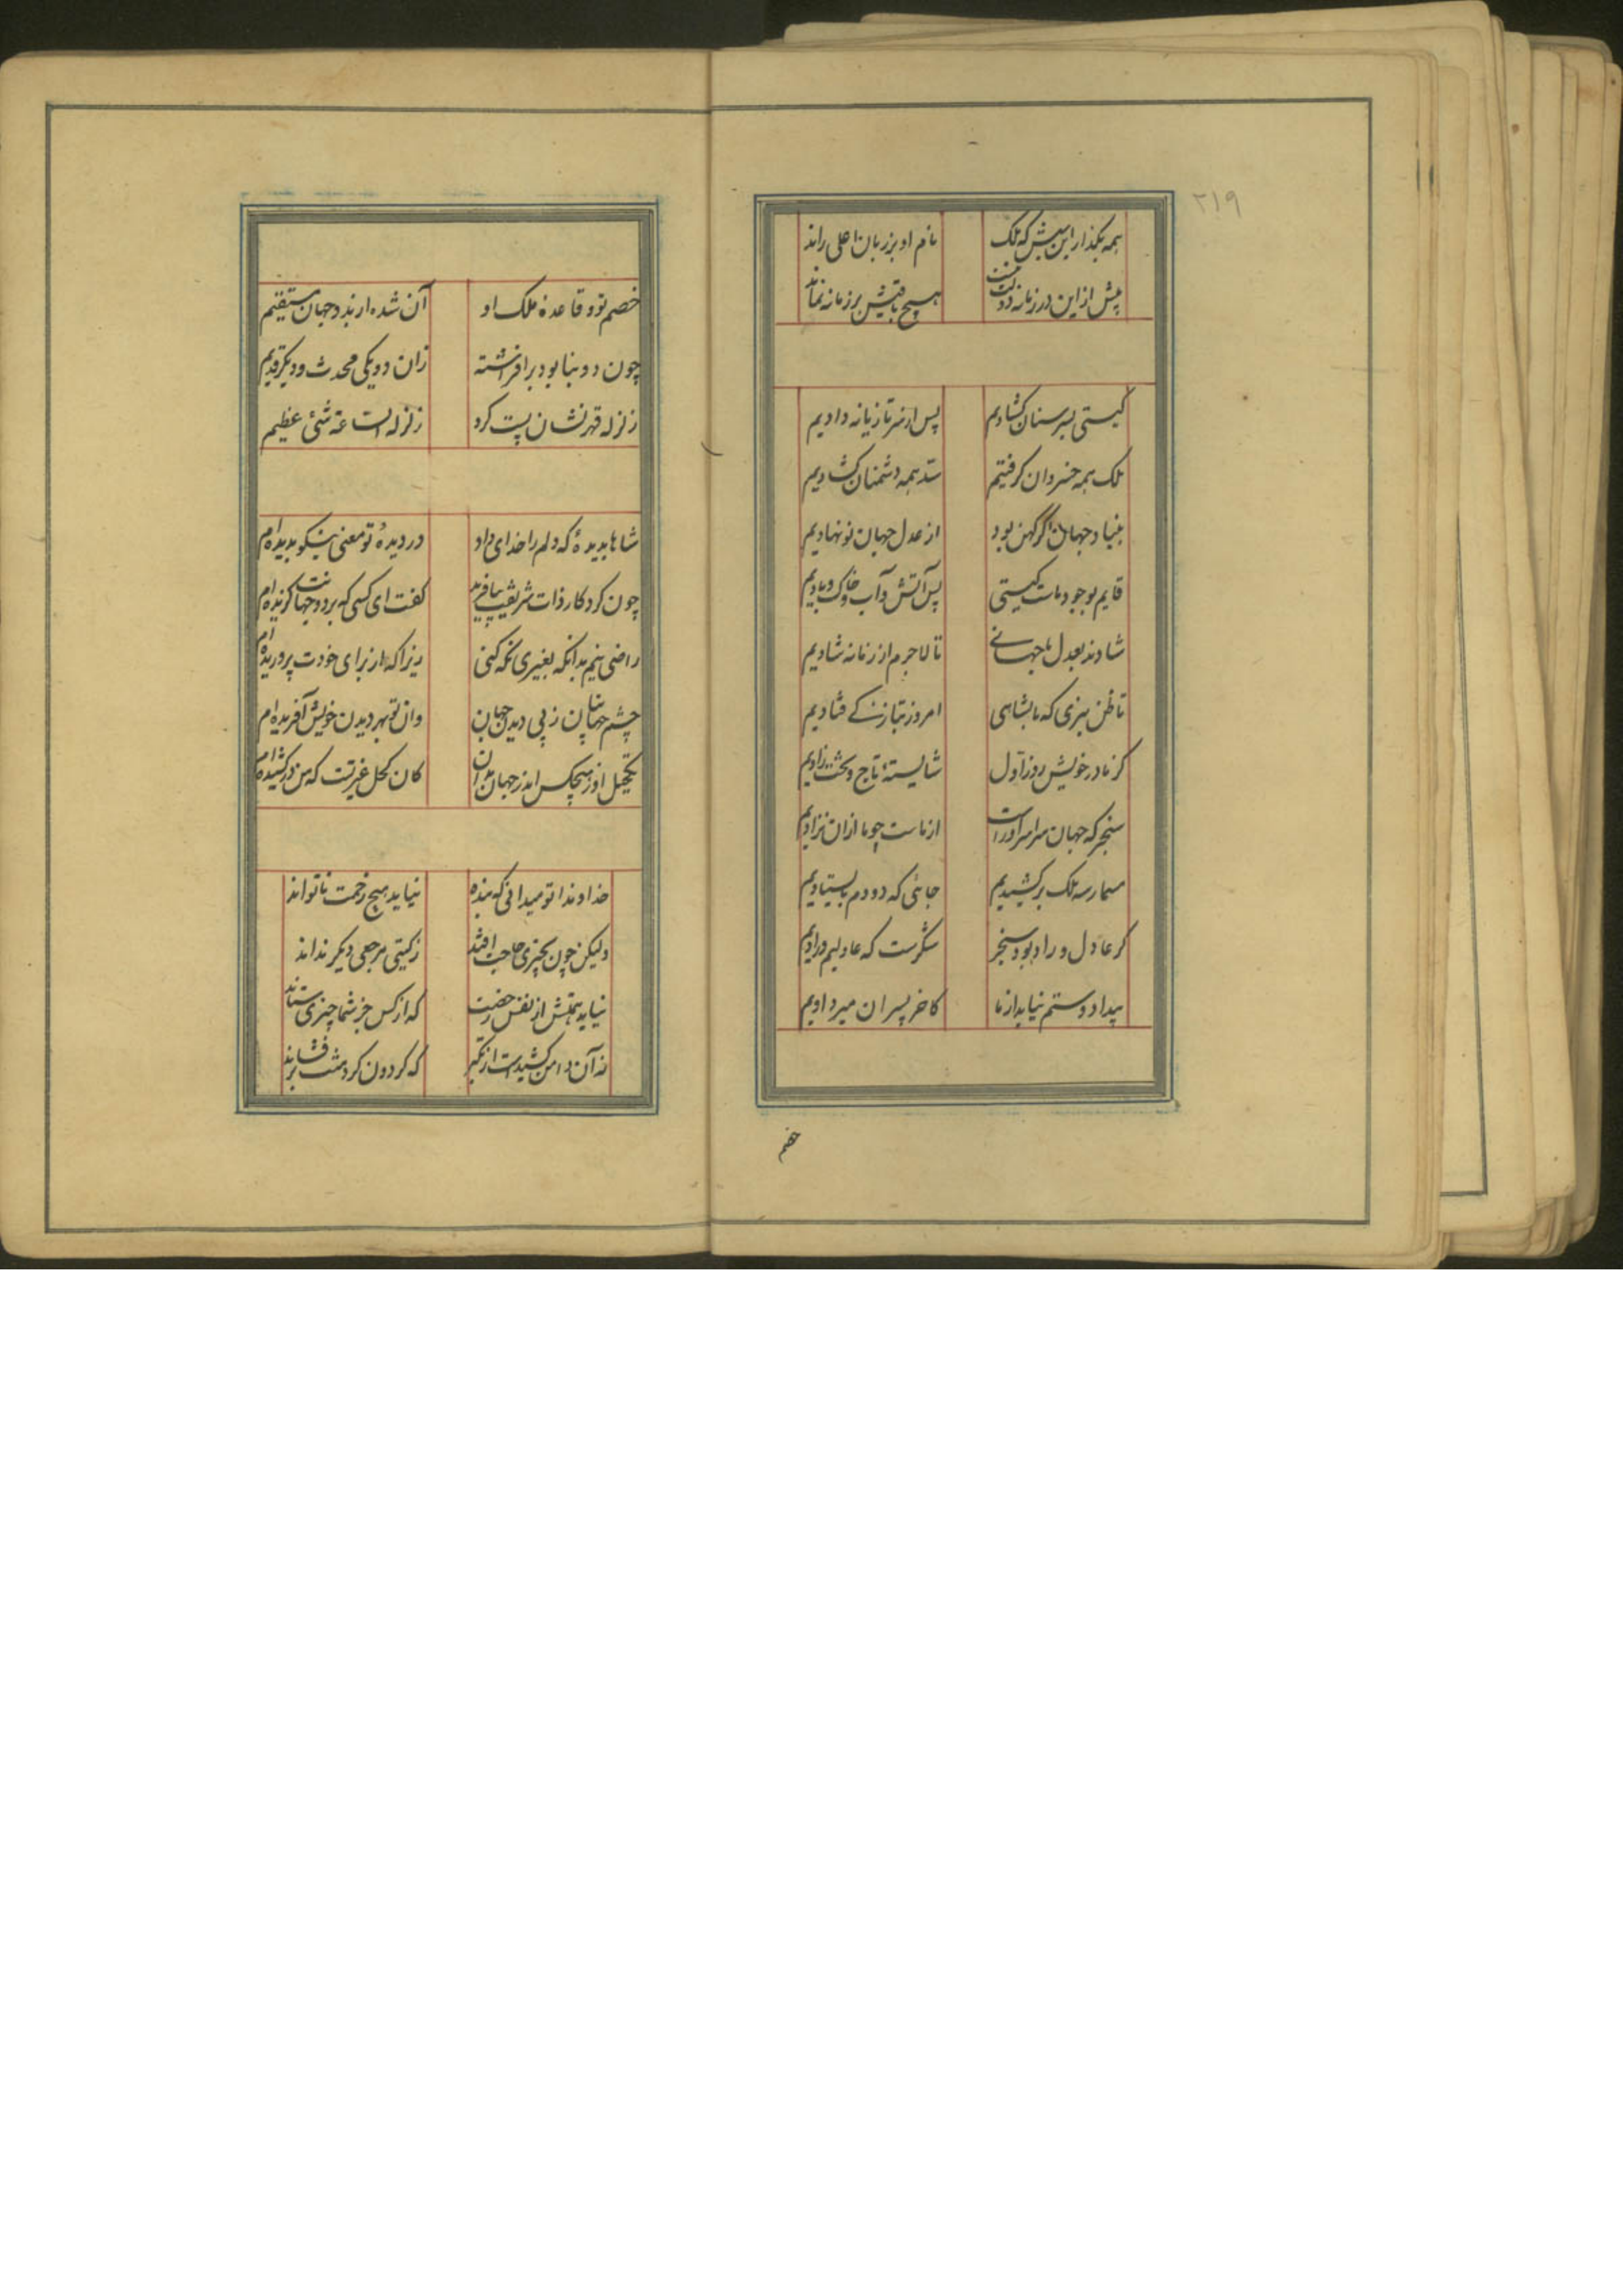 ۲۱۹
همه بگذار این بیش که ملک نام او بر زبان اعلی راند
پیش از این در زمانه دولت هیچ باقیش بر زمانه نماند
گیتی بسر سنان گشادیم پس از سر تازیانه دادیم
ملک همه خسروان گرفتیم سد همه دشمنان گشادیم
بنیاد جهان اگر کهن بود از عدل جهان نو نهادیم
قایم بوجود ماست گیتی پس آتش و آب و خاک و بادیم
شادند بعدل ما جهانی تا لاجرم از زمانه شادیم
تا ظن نبری که ما بشاهی امروز بتازگی فتادیم
کز مادر خویش روز اول شایستهٔ تاج و تخت زادیم
سنجر که جهان سراسر او راست از ماست چو ما از آن نژادیم
مسمار سه ملک برکشیدیم جائی که دو دم بایستادیم
گر عادل و راد بود سنجر شکرست که عادلیم و رادیم
بیداد و ستم نیاید از ما کاخر پسران میر دادیم
خصم
خصم تو و قاعدهٔ ملک او آن شده از بد و جهان مستقیم
چون دو بنا بود برافراشته زان دو یکی محدث و دیگر قدیم
زلزله قهر تشان پست کرد زلزلة الساعة شئی عظیم
شاها بدیدهٔ که دلم را خدای داد در دیدهٔ تو معنی نیکو بدیده‌ام
چون کردگار ذات شریفت بیافرید گفت ای کسی که بر دو جهانت گزیده‌ام
راضی نیم بدانکه بغیری نگه کنی زیرا که از برای خودت پروریده‌ام
چشم جهانیان ز پی دیدن جهان وان تو بهر دیدن خویش آفریده‌ام
تکحیل او ز هیچکس اندر جهان مدان کان کحل غیرتست که من در کشیده‌ام
خداوندا تو میدانی که بنده نیاید هیچ زحمت تا تواند
ولیکن چون بچیزی حاجت افتد ز گیتی مرجعی دیگر نداند
نیاید همتش از نفس رخصت که از کس جز شما چیزی ستاند
نه آن دامن کشیدست از تکبر که گردون گرد منت برفشاند